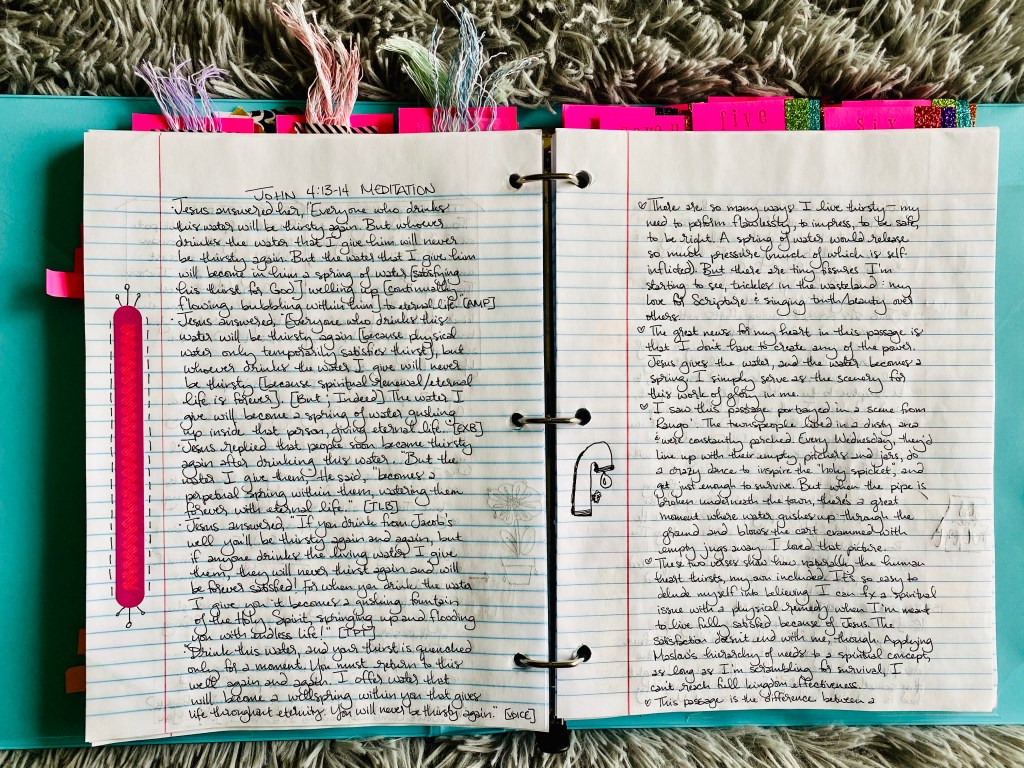 five
six
JOHN 4:13-14 MEDITATION
· Jesus answered her, "Everyone who drinks
this water will be thirsty again. But whoever
drinks the water that I give him will never
be thirsty again. But the water that I give him
will become in him a spring of water [satisfying
his thirst for God] welling up [continually
flowing, bubbling within him] to eternal life." [AMP]
· Jesus answered, "Everyone who drinks this
water will be thirsty again [because physical
water only temporarily satisfies thirst], but
whoever drinks the water I give will never
be thirsty [because spiritual renewal/eternal
life is forever]. [But; Indeed] The water I
give will become a spring of water gushing
up inside that person, giving eternal life." [EXB]
· Jesus replied that people soon became thirsty
again after drinking this water. "But the
water I give them," He said, "becomes a
perpetual spring within them, watering them
forever with eternal life." [TLB]
· Jesus answered, "If you drink from Jacob's
well you'll be thirsty again and again, but
if anyone drinks the living water I give
them, they will never thirst again and will
be forever satisfied! For when you drink the water
I give you it becomes a gushing fountain
of the Holy Spirit, springing up and flooding
you with endless life!" [TPT]
· "Drink this water, and your thirst is quenched
only for a moment. You must return to this
well again and again. I offer water that
will become a wellspring within you that gives
life throughout eternity. You will never be thirsty again." [VOICE]
♡ There are so many ways I live thirsty — my
need to perform flawlessly, to impress, to be safe,
to be right. A spring of water would release
so much pressure (much of which is self-
inflicted). But there are tiny fissures I'm
starting to see, trickles in the wasteland: my
love for Scripture & singing truth/beauty over
others.
♡ The great news for my heart in this passage is
that I don't have to create any of the power.
Jesus gives the water, and the water becomes a
spring. I simply serve as the scenery for
this work of glory in me.
♡ I saw this passage portrayed in a scene from
"Rango". The townspeople lived in a dusty area
& were constantly parched. Every Wednesday, they'd
line up with their empty pitchers and jars, do
a crazy dance to inspire the "holy spicket", and
get just enough to survive. But when the pipe is
broken underneath the town, there's a great
moment where water gushes up through the
ground and blows the cart crammed with
empty jugs away. I loved that picture.
♡ These two verses show how naturally the human
heart thirsts, my own included. It's so easy to
delude myself into believing I can fix a spiritual
issue with a physical remedy when I'm meant
to live fully satisfied because of Jesus. The
satisfaction doesn't end with me, though. Applying
Maslow's hierarchy of needs to a spiritual concept,
as long as I'm scrambling for survival, I
can't reach full kingdom effectiveness.
♡ This passage is the difference between a